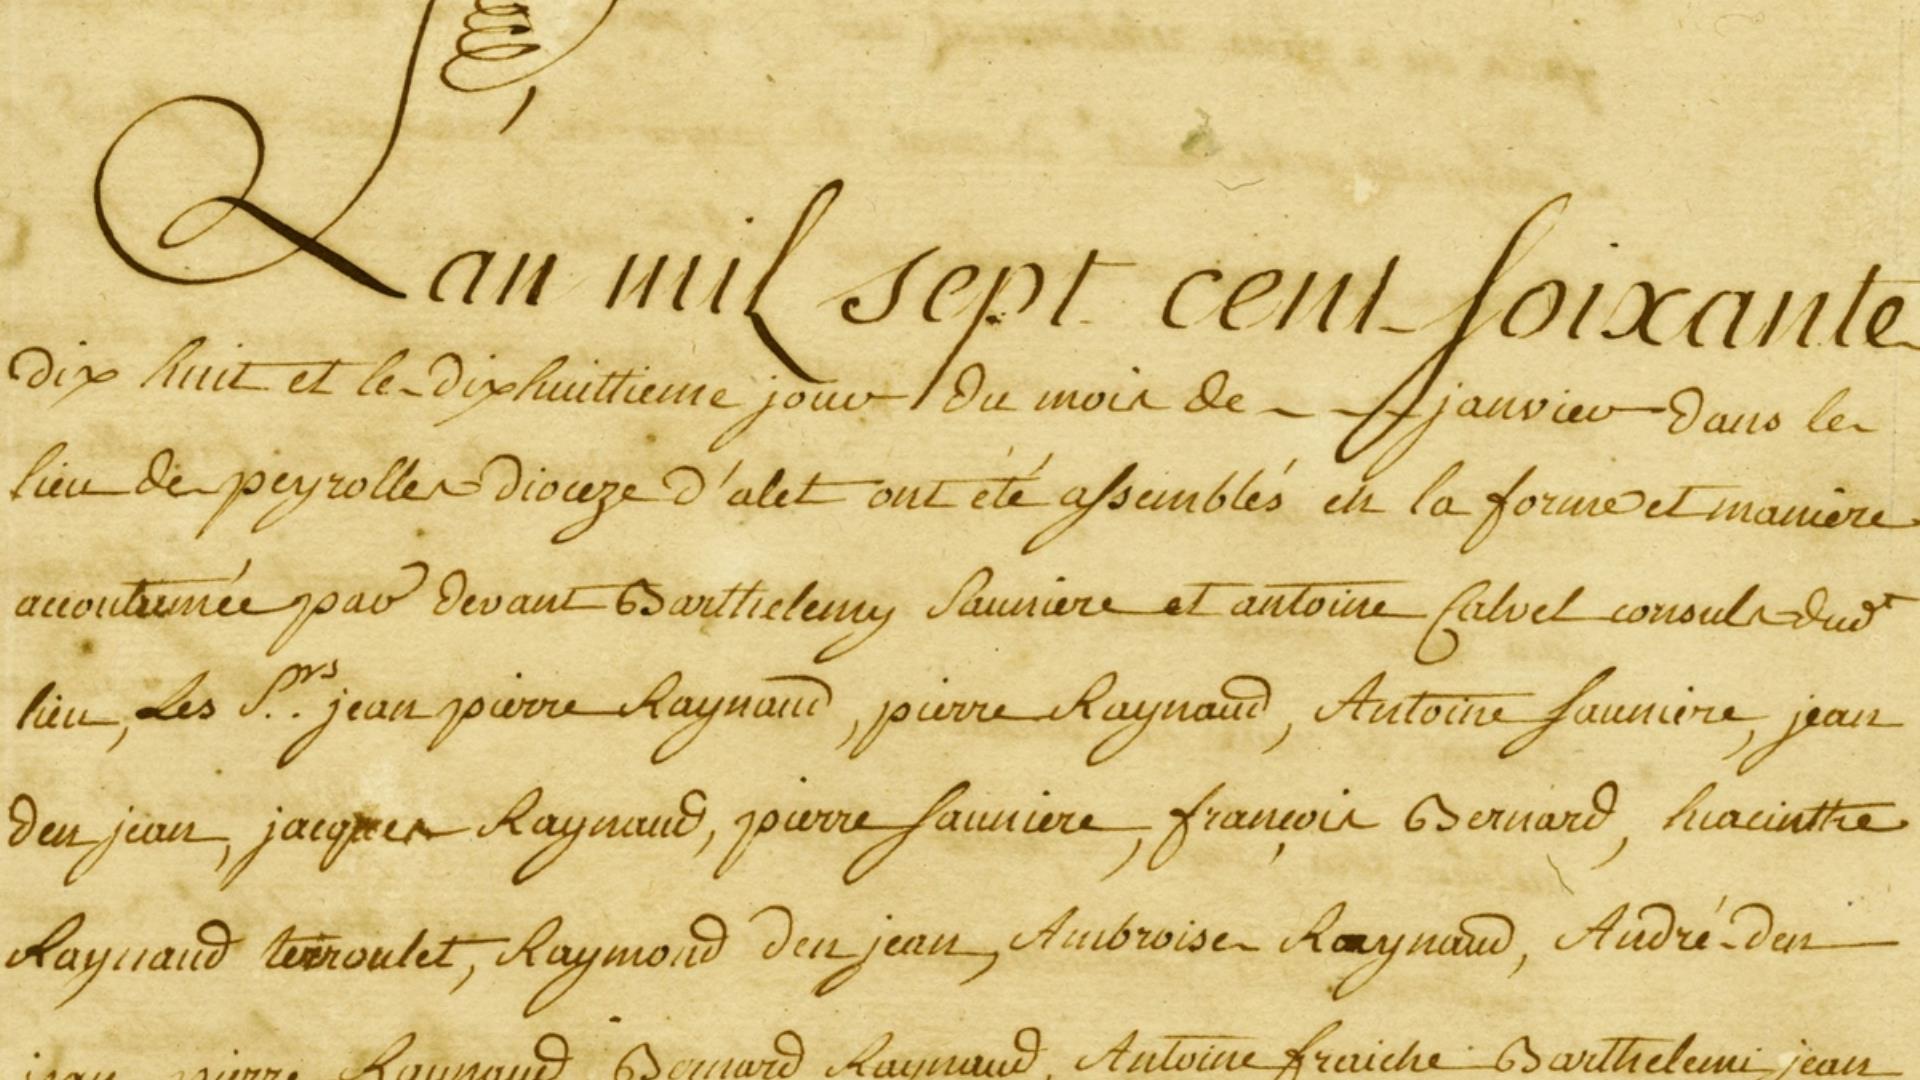 Lan mil sept cent soixante
dix huit et le dixhuittieme jour du mois de - - - janvier dans le
lieu de peyrolles dioceze d'alet ont été assemblés en la forme et maniere
accoutumée par devant Barthelemy Sauniere et antoine Calvel consuls dud.t
lieu, Les S.rs jean pierre Raynaud, pierre Raynaud, Antoine Sauniere, jean
den jean, jacques Raynaud, pierre Sauniere, françois Bernard, hiacinthe
Raynaud terroulet, Raymond den jean, Ambroise Raynaud, André den
jean, pierre Raynaud, Bernard Raynaud, Antoine fraiche Barthelemi jean